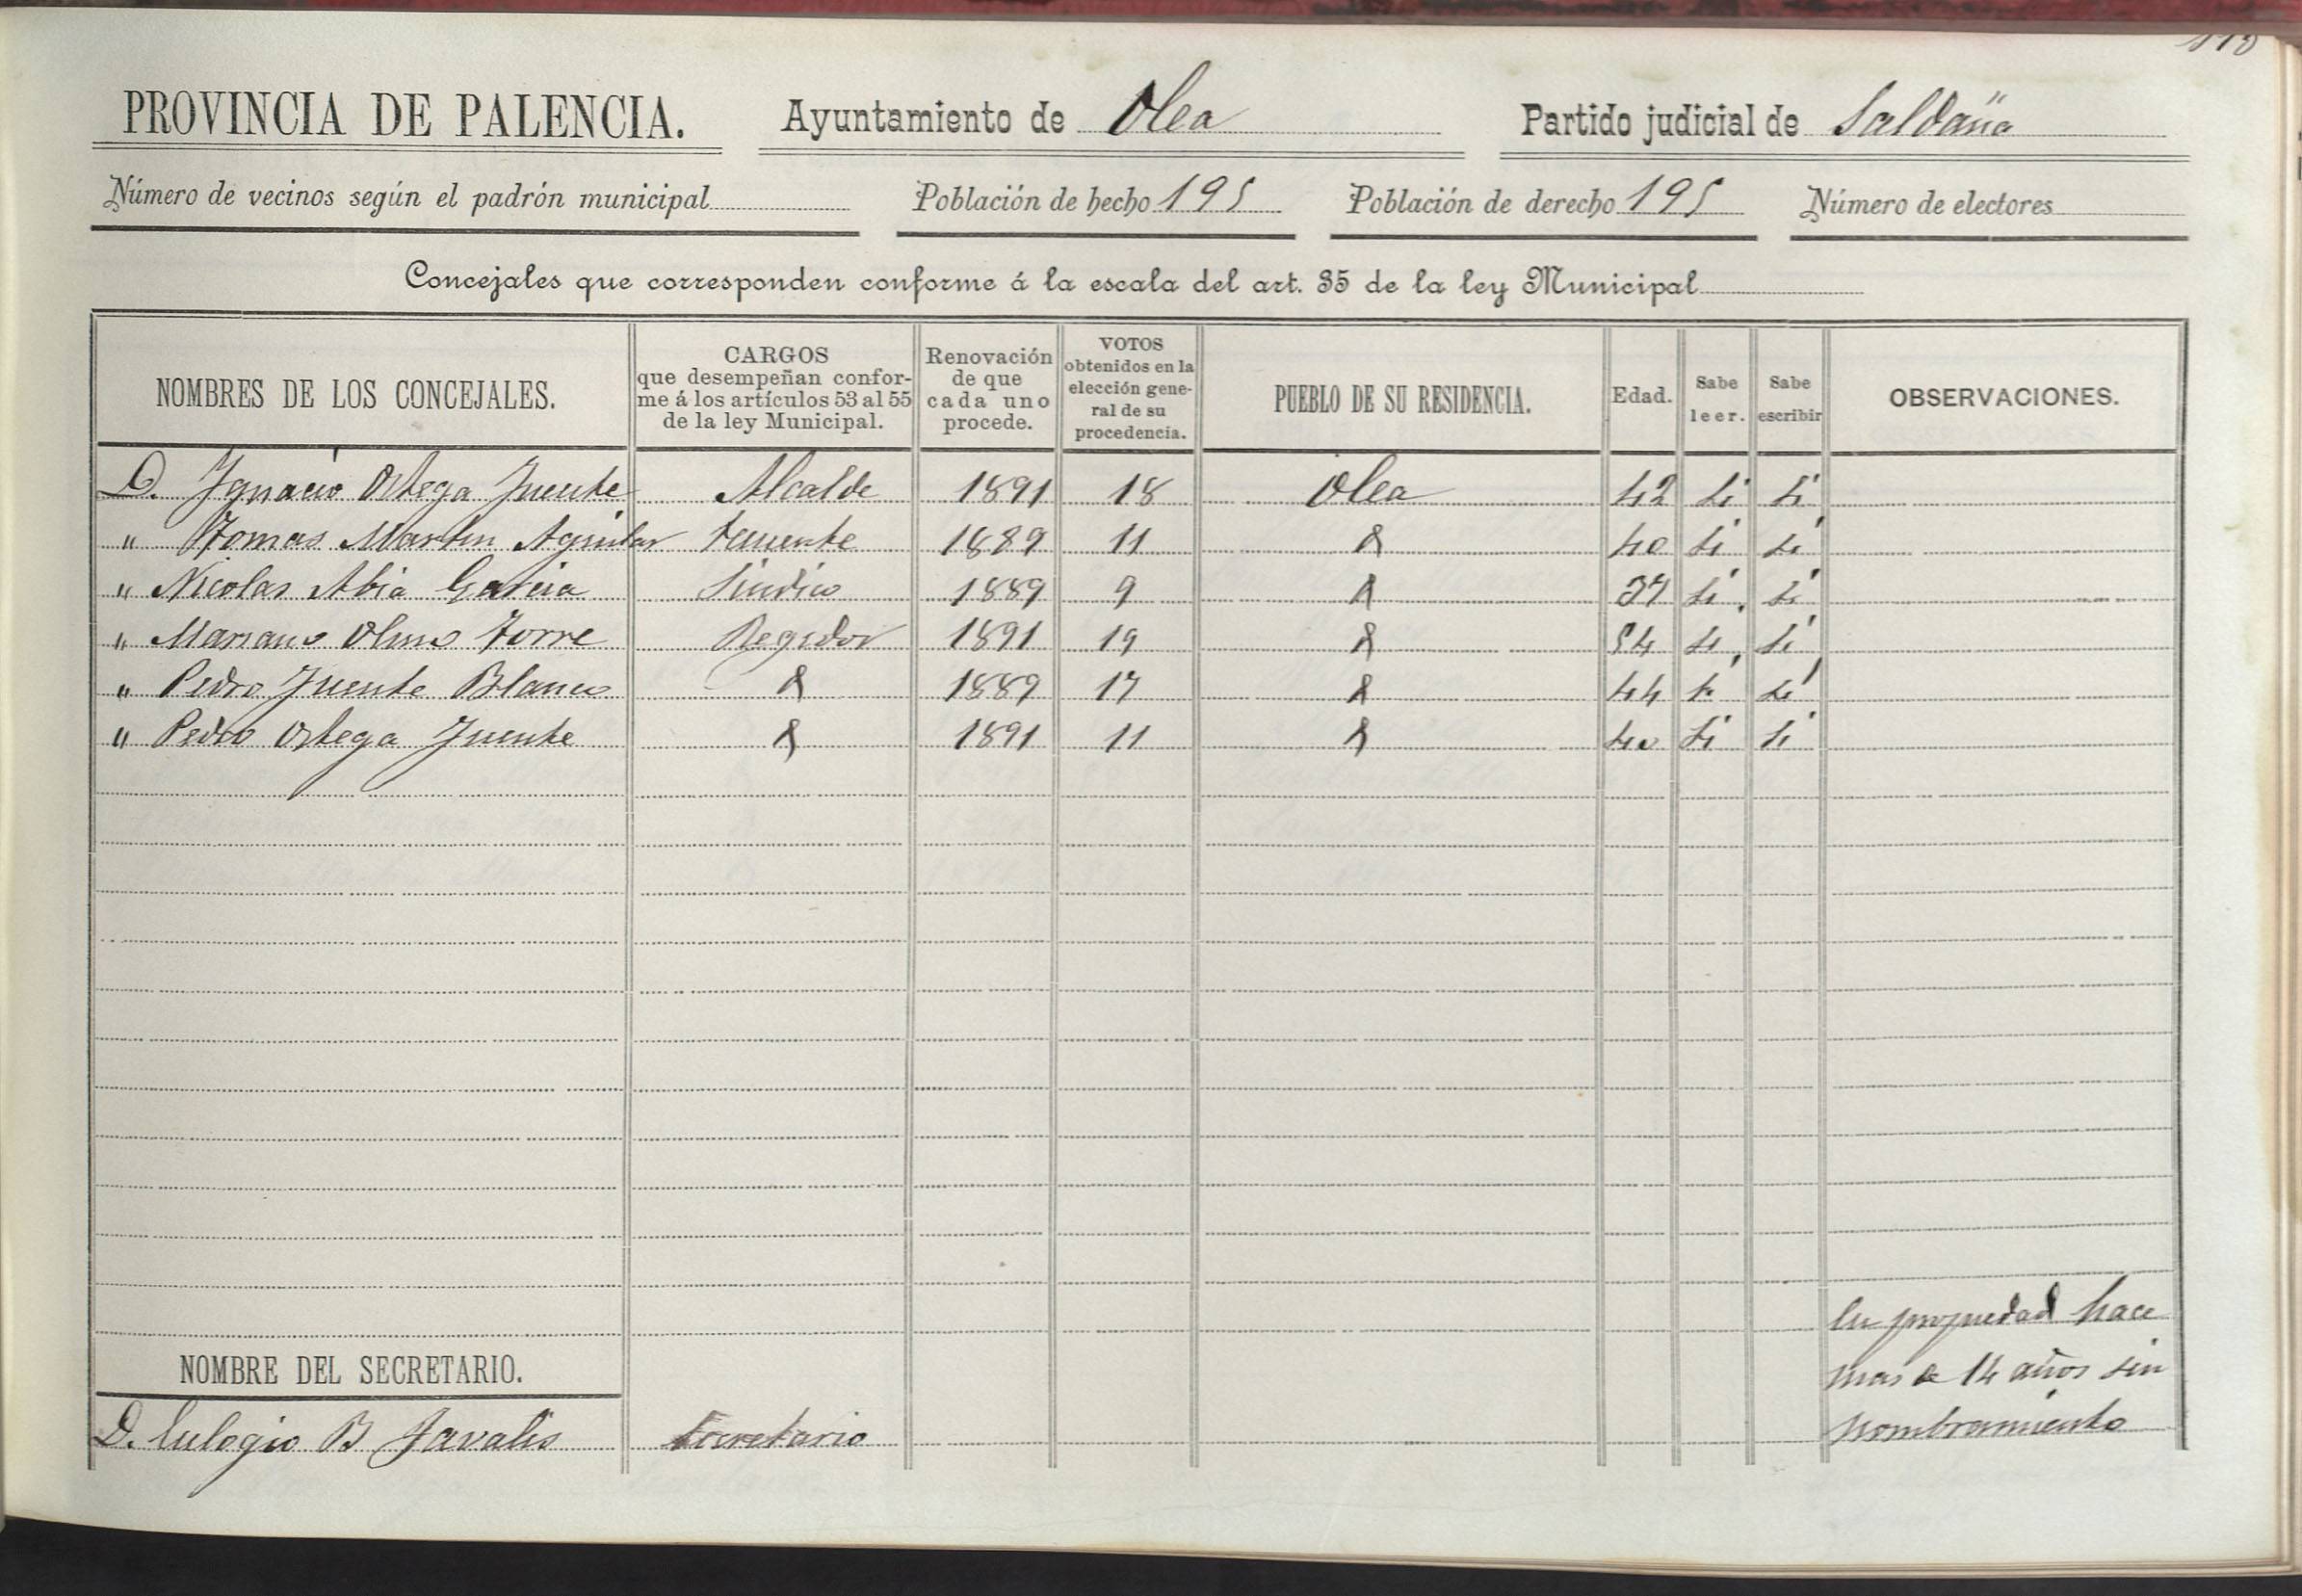 PROVINCIA DE PALENCIA. Ayuntamiento de Olea Partido judicial de Saldaña
Número de vecinos según el padrón municipal Población de hecho 195 Población de derecho 195 Número de electores
Concejales que corresponden conforme á la escala del art. 35 de la ley Municipal
NOMBRES DE LOS CONCEJALES. CARGOS que desempeñan conforme á los artículos 53 al 55 de la ley Municipal. Renovación de que cada uno procede. VOTOS obtenidos en la elección general de su procedencia. PUEBLO DE SU RESIDENCIA. Edad. Sabe leer. Sabe escribir OBSERVACIONES.
D. Ygnacio Ortega Fuente Alcalde 1891 18 Olea 42 Si Si
" Tomas Martin Aguilar Teniente 1889 11 & 40 Si Si
" Nicolas Abia Garcia Sindico 1889 9 & 37 Si Si
" Mariano Olmo Torre Regidor 1891 19 & 54 Si Si
" Pedro Fuente Blanco & 1889 17 & 44 Si Si
" Pedro Ortega Fuente & 1891 11 & 40 Si Si
En propiedad hace
mas de 14 años sin
nombramiento
NOMBRE DEL SECRETARIO.
D. Eulogio B Javalis Secretario